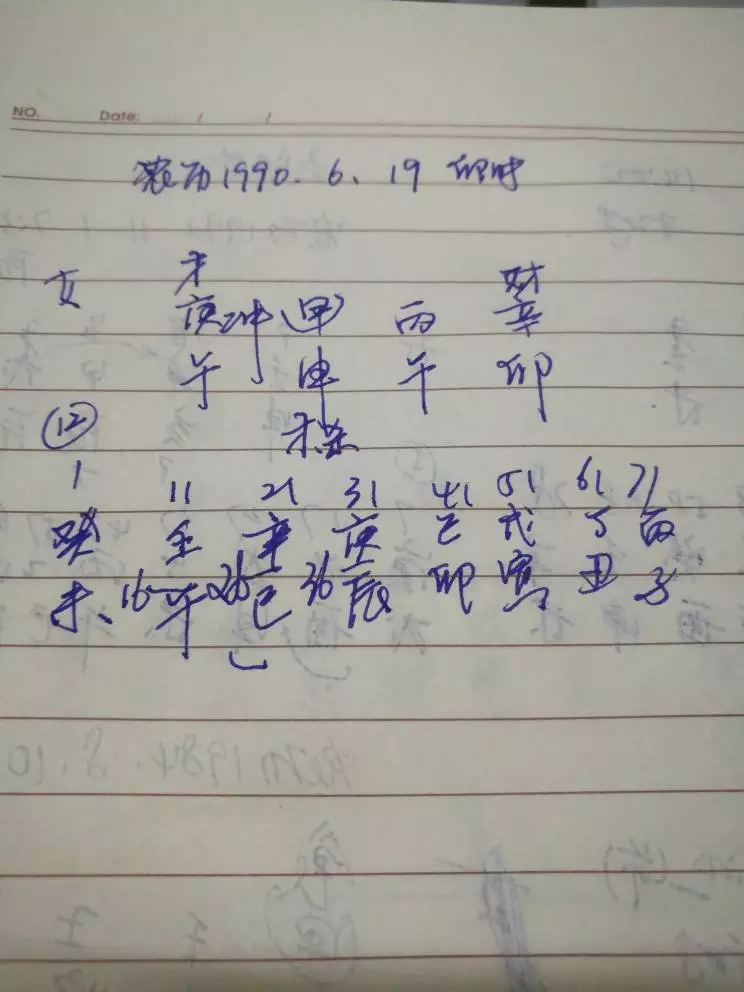 NO. Date: / /
农历1990. 6、19 卯时
女 才 财
庚 冲 (甲) 丙 辛
午 申 午 卯
⑫ 才杀
1 11 21 31 41 51 61 71
癸 壬 辛 庚 己 戊 丁 丙
未、 16 午 26 巳 36 辰 卯 寅 丑 子